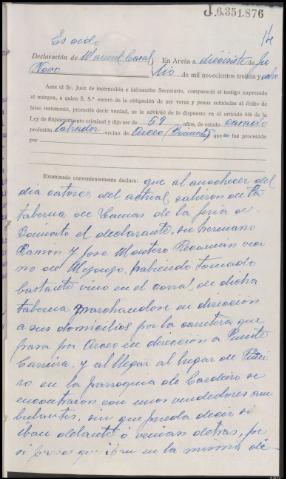 J.6.351.876
Es acdo
Declaración de Manuel Casal En Arzúa a dieciséis de Ju
Novo lio de mil novecientos treinta y
Ante el Sr. Juez de instrucción e infrascrito Secretario, compareció el testigo expresado
al margen, a quien S. S.ª enteró de la obligación de ser veraz y penas señaladas al delito de
falso testimonio, prestó decir verdad, se le advirtió de lo dispuesto en el artículo 446 de la
Ley de Enjuiciamiento criminal y dijo ser de 59 años, de estado casado
profesión labrador vecino de Oroso (Boimorto) que no fue procesado
por
Examinado convenientemente declara: que al anochecer del
día catorce del actual, salieron de la
taberna de Camas de la feria de
Boimorto el declarante, su hermano
Ramón y José Mosteiro Recamán veci
no de Mezonzo, habiendo tomado
bastante vino en el corral de dicha
taberna, marchándose en dirección
a sus domicilios por la carretera que
pasa por Oroso en dirección a Puente
Carreira, y al llegar al lugar de
ro en la parroquia de Cardeiro se
encontraron con unos vendedores am
bulantes, sin que pueda decir si
iban delante o venían detrás, pe
ro que iban en la misma di